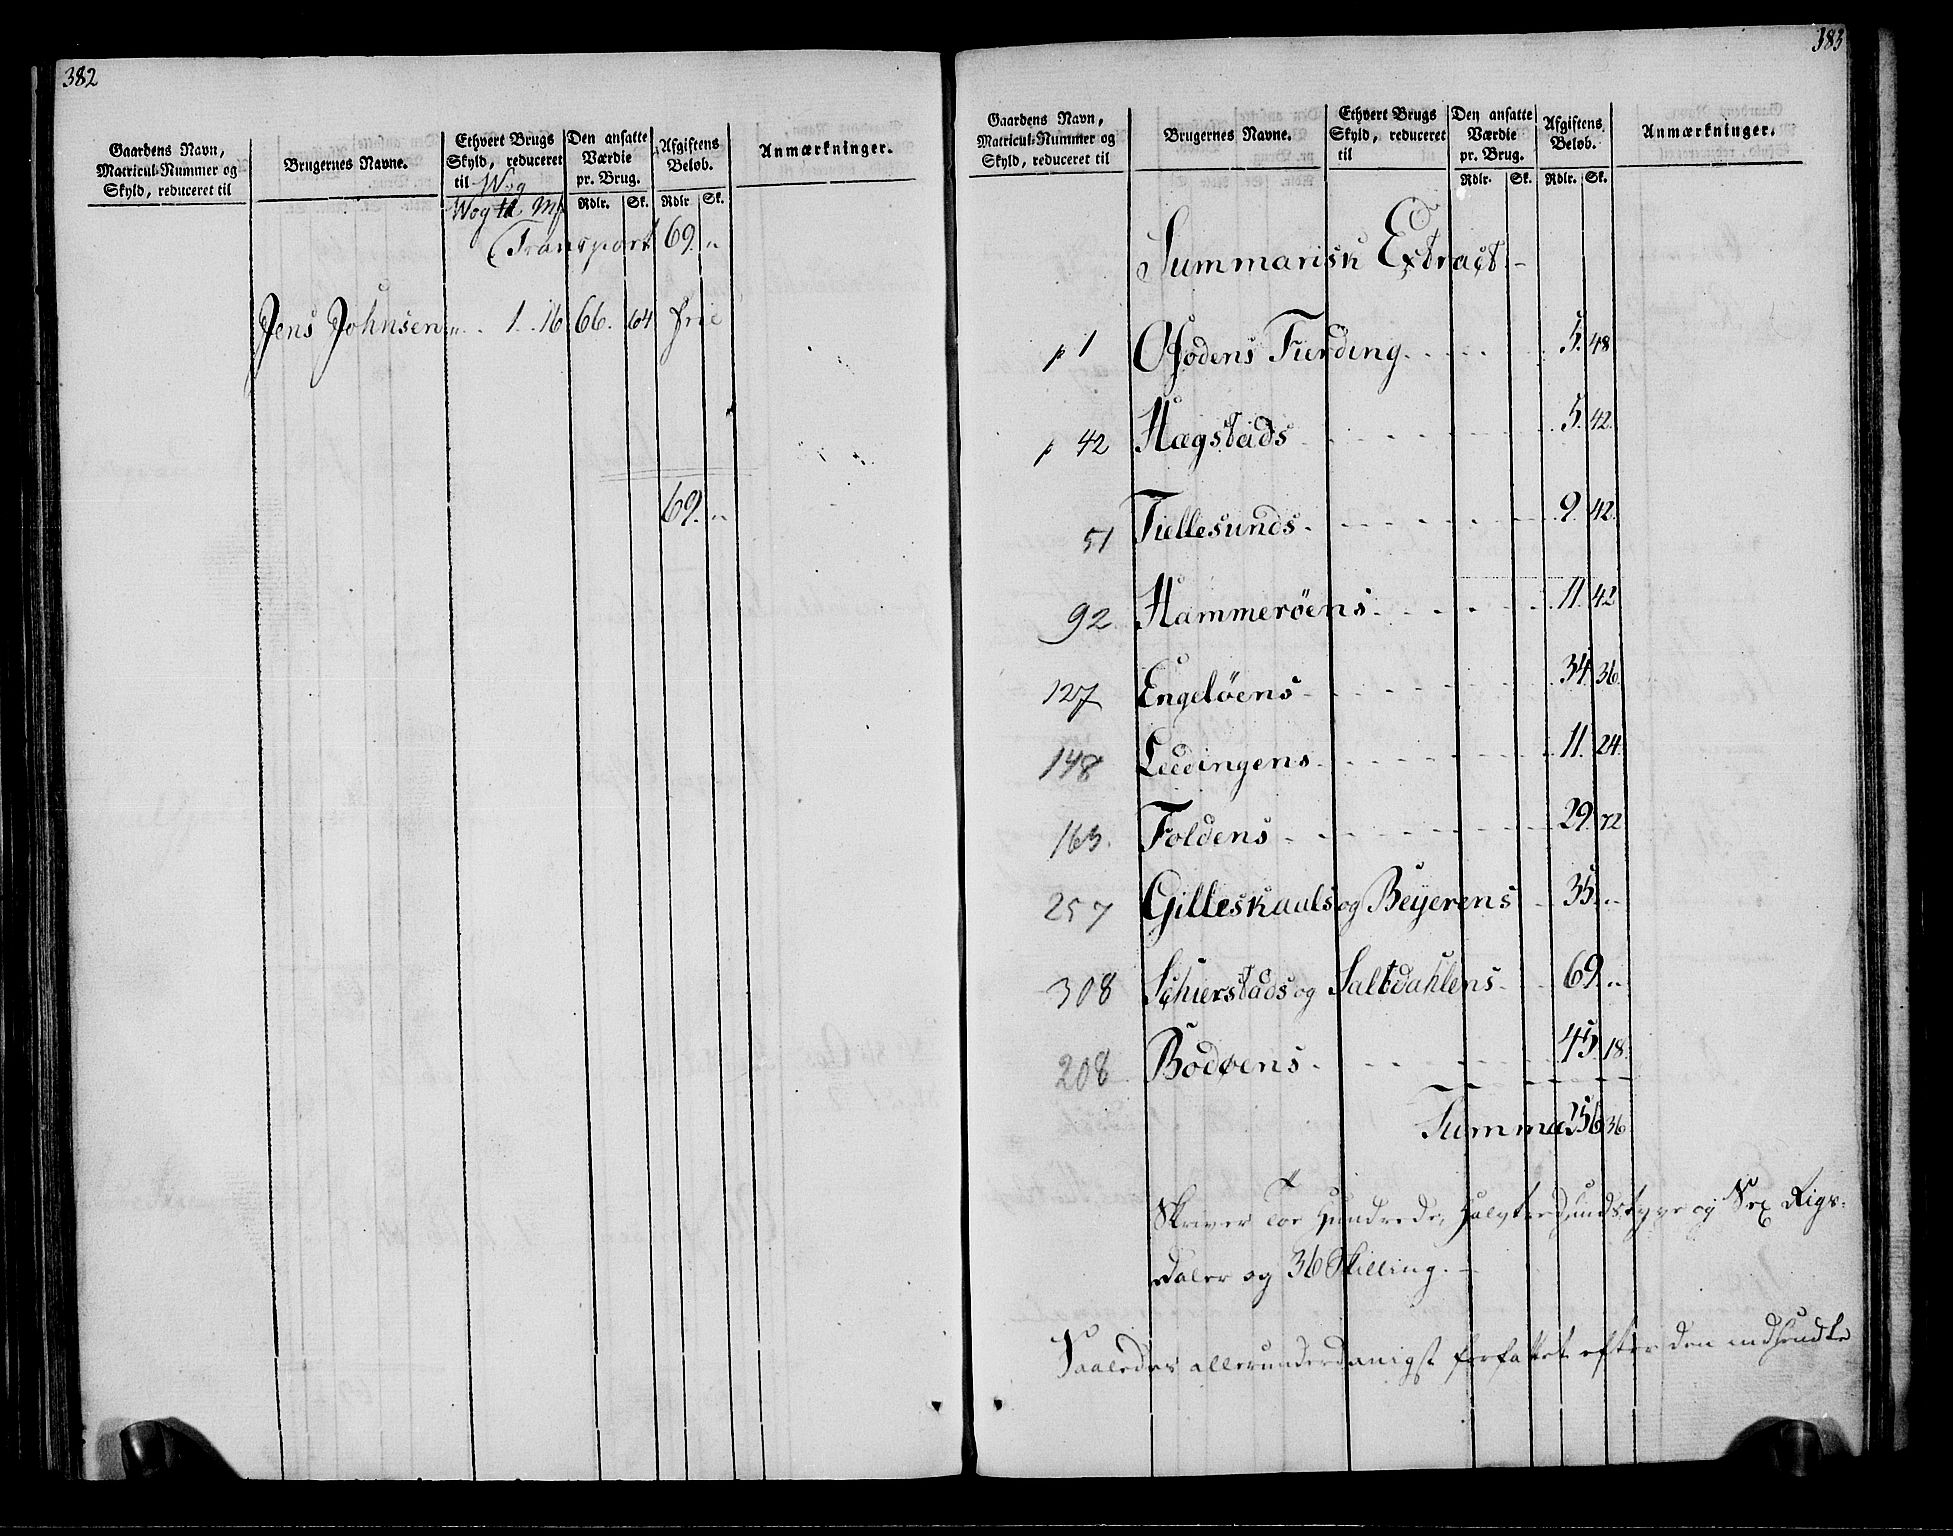 382
Gaardens Navn, Matricul-Nummer og Skyld, reduceret til
Brugernes Navne.
Ethvert Brugs Skyld, reduceret til Wog
Den ansatte Værdie pr. Brug.
Afgiftens Beløb.
Anmærkninger.
Wog ℔ Mk
Rdlr. Sk. Rdlr Sk.
Transport 69. "
Jens Johnsen " 1 16 66. 64 frie
69. "
383
Gaardens Navn, Matricul-Nummer og Skyld, reduceret til
Brugernes Navne.
Ethvert Brugs Skyld, reduceret til
Den ansatte Værdie pr. Brug.
Afgiftens Beløb.
Anmærkninger.
Rdlr. Sk. Rdlr. Sk.
Summarisk Extract
p 1 Ofodens Fierding 5. 48
p 42 Hægstads 5. 42.
51 Tiellesunds 9. 42.
92 Hammerøens 11. 42
127 Engeløens 34. 36.
148 Lødingens 11. 24.
163. Foldens 29. 72
257 Gilleskaals og Beyerens 35. "
308 Schierstads og Saltdahlens 69. "
208 Bodøens 45. 18.
Summa 256 36
Skriver Toe Hundrede, Halvtredsindstyve og Sex Rigs-
daler og 36 Skilling.
Saaledes allerunderdanigst forfattet efter den indsendte